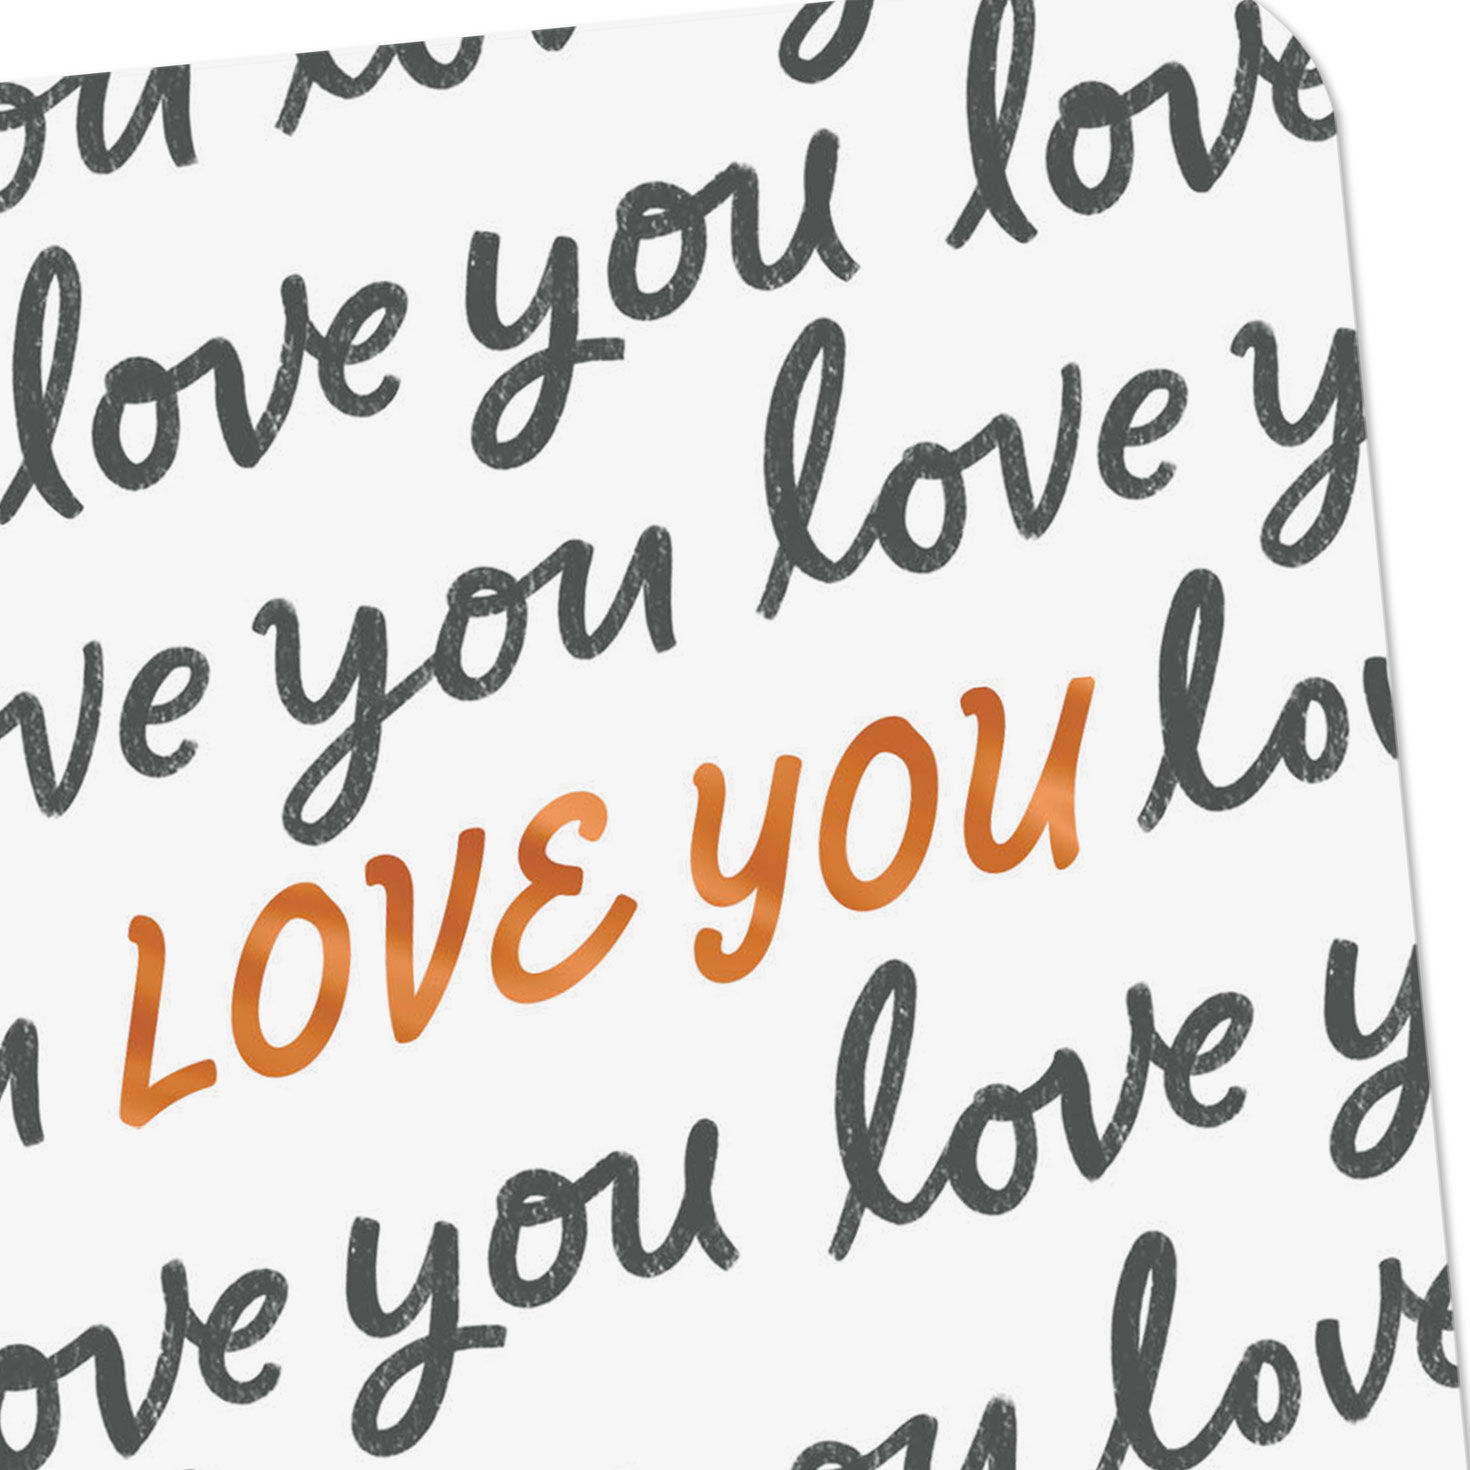 you love
love you love
ve you love y
LOVE YOU lov
ove you love y
ou love